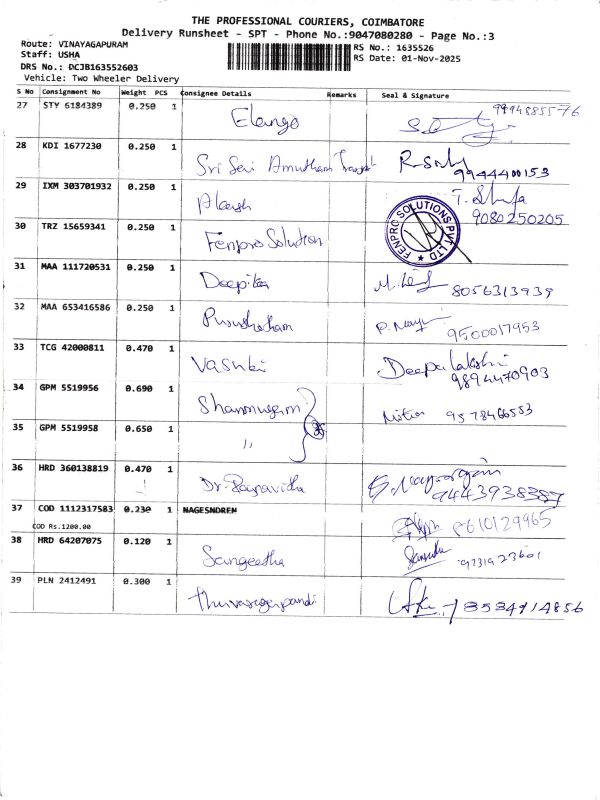 THE PROFESSIONAL COURIERS, COIMBATORE
Delivery Runsheet - SPT - Phone No.:9047080280 - Page No.:3
Route: VINAYAGAPURAM
Staff: USHA
DRS No.: DCJB163552603
Vehicle: Two Wheeler Delivery
RS No.: 1635526
RS Date: 01-Nov-2025
S No Consignment No Weight PCS Consignee Details Remarks Seal & Signature
27 STY 6184389 0.250 1 Elango
28 KDI 1677230 0.250 1 Sri Amutham 9944400153
29 IXM 303701932 0.250 1 Akash 9080250205
30 TRZ 15659341 0.250 1 Fenpro Solution FENPRO SOLUTIONS PVT LTD
31 MAA 111720531 0.250 1 Deepika 8056313939
32 MAA 653416586 0.250 1 Purushotham 9500017953
33 TCG 42000811 0.470 1 Vasuki Deepa lakshmi
9894470903
34 GPM 5519956 0.690 1 Shanmugam 9578466553
35 GPM 5519958 0.650 1 "
36 HRD 360138819 0.470 1 Dr. 9443938387
37 COD 1112317583 0.230 1 NAGESNDREN 8610129965
COD Rs.1200.00
38 HRD 64207075 0.120 1 Sangeetha
39 PLN 2412491 0.300 1